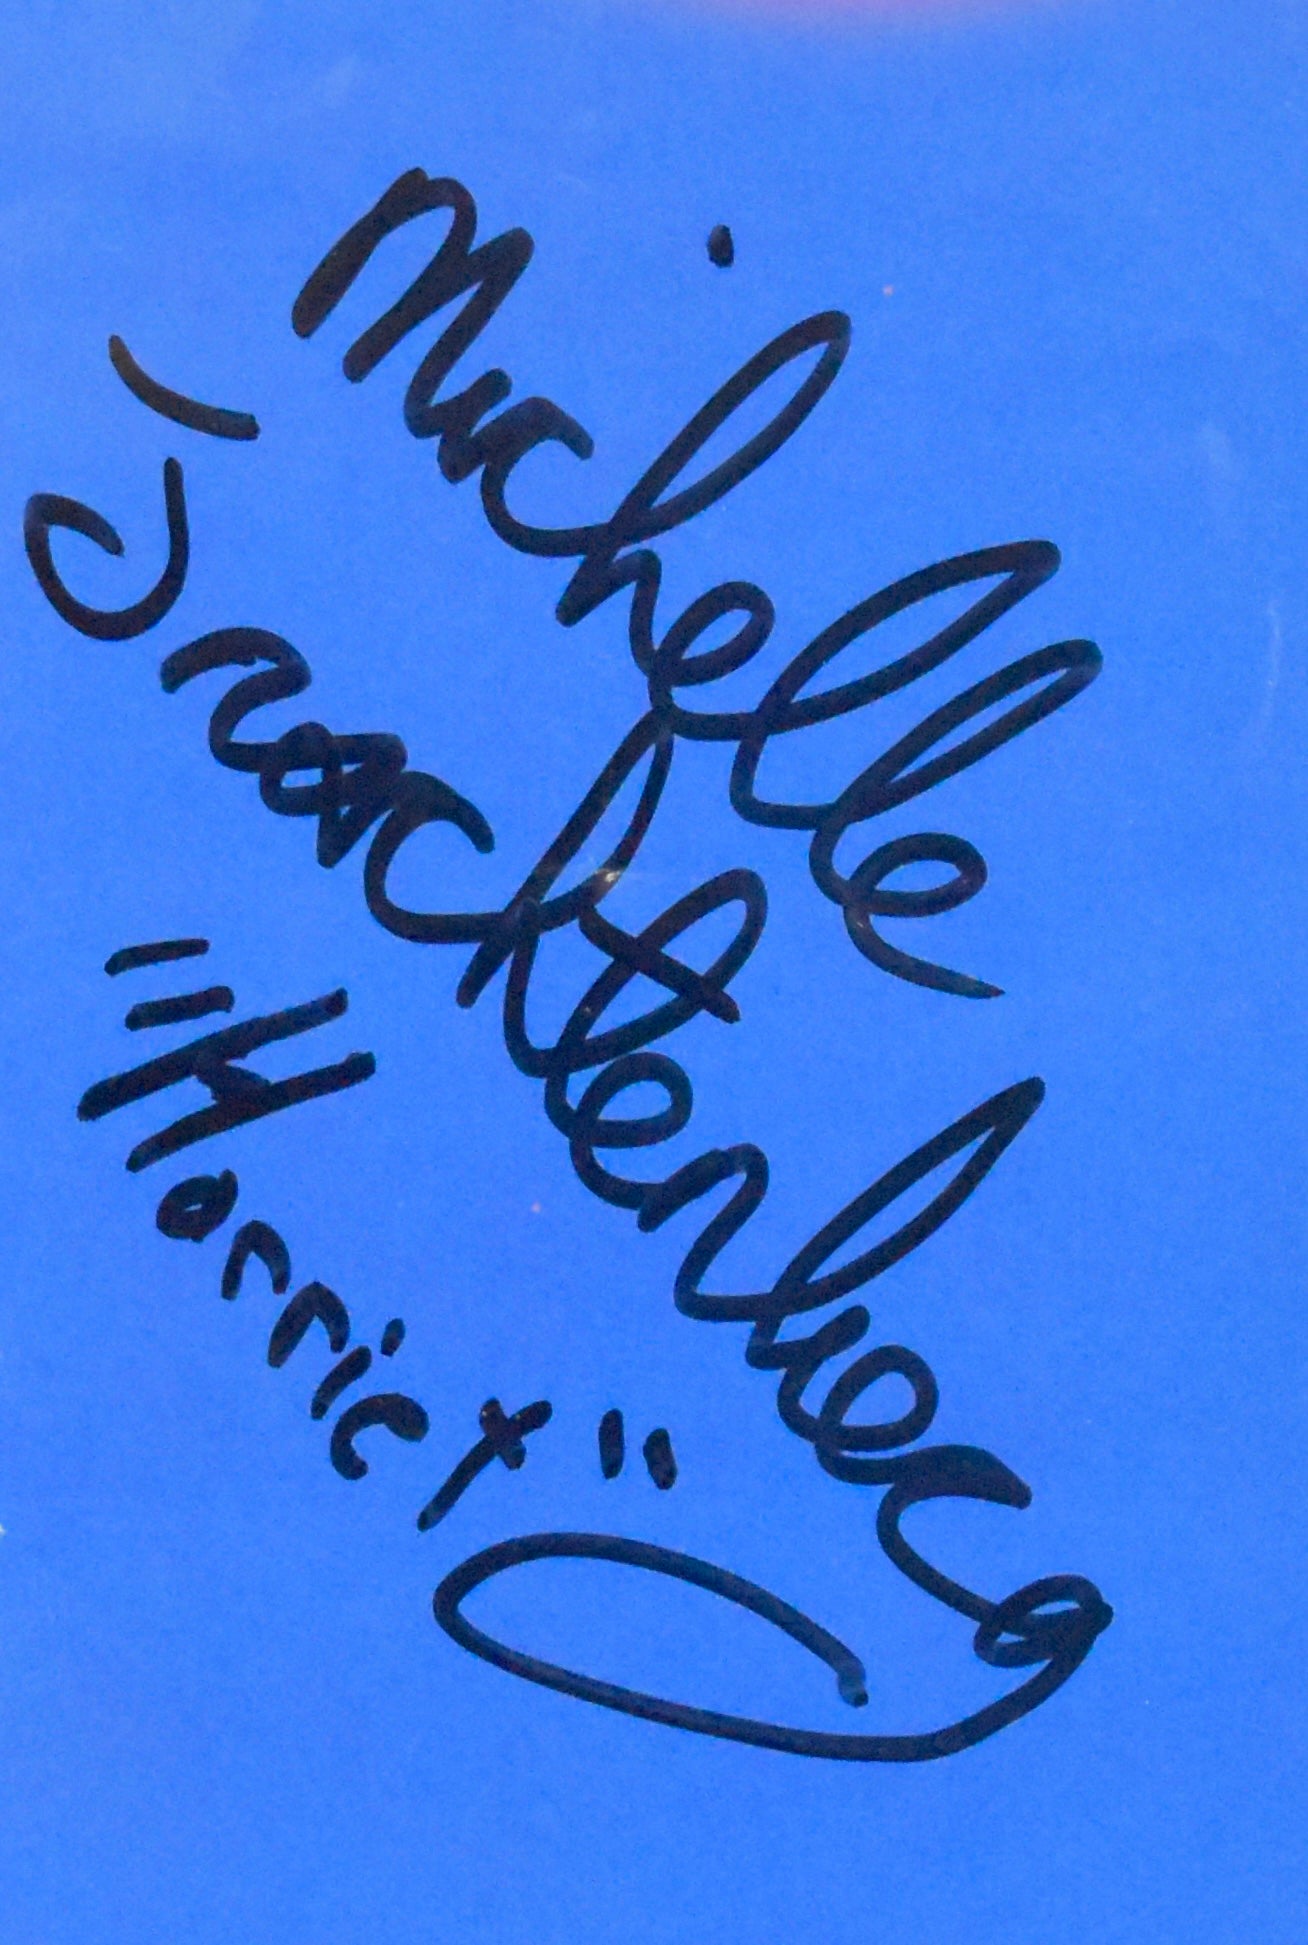 Michelle
Trachtenberg
"Harriet"